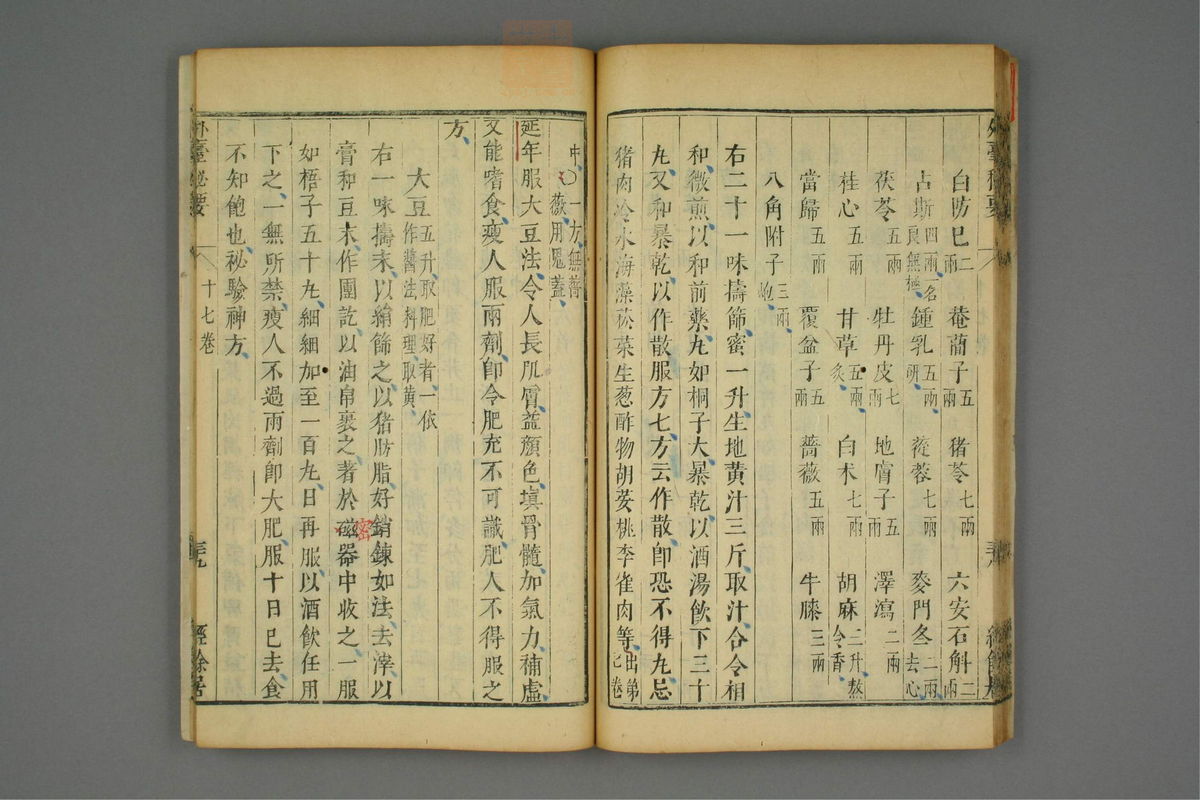 白防巳二兩 菴䕡子五兩 猪苓七兩 六安石斛二兩
占斯四兩名良無極 鍾乳五兩研 蓯蓉七兩 麥門冬二兩去心
茯苓五兩 牡丹皮七兩 地膚子五兩 澤瀉二兩
桂心五兩 甘草五兩炙 白朮七兩 胡麻二升熬令香
當歸五兩 覆盆子五兩 薔薇五兩 牛膝三兩
八角附子三兩炮
右二十一味擣篩蜜一升生地黃汁三斤取汁合令相
和微煎以和前藥丸如桐子大暴乾以酒湯飲下三十
丸又和暴乾以作散服方七方云作散卽恐不得丸忌
猪肉冷水海藻菘菜生葱酢物胡荽桃李雀肉等出第七卷
中○一方無薔薇用鬼蓋
延年服大豆法令人長肌膚益顏色填骨髓加氣力補虛
又能嗜食瘦人服兩劑卽令肥充不可識肥人不得服之
方
大豆五升取肥好者一依作醬法料理取黃
右一味擣末以絹篩之以猪肪脂好銷鍊如法去滓以
膏和豆末作團訖以油帛裹之著於磁器中收之一服
密
如梧子五十丸細細加至一百丸日再服以酒飲任用
下之一無所禁瘦人不過兩劑卽大肥服十日巳去食
不知飽也祕驗神方
外臺祕要 十七卷 三九 經餘居